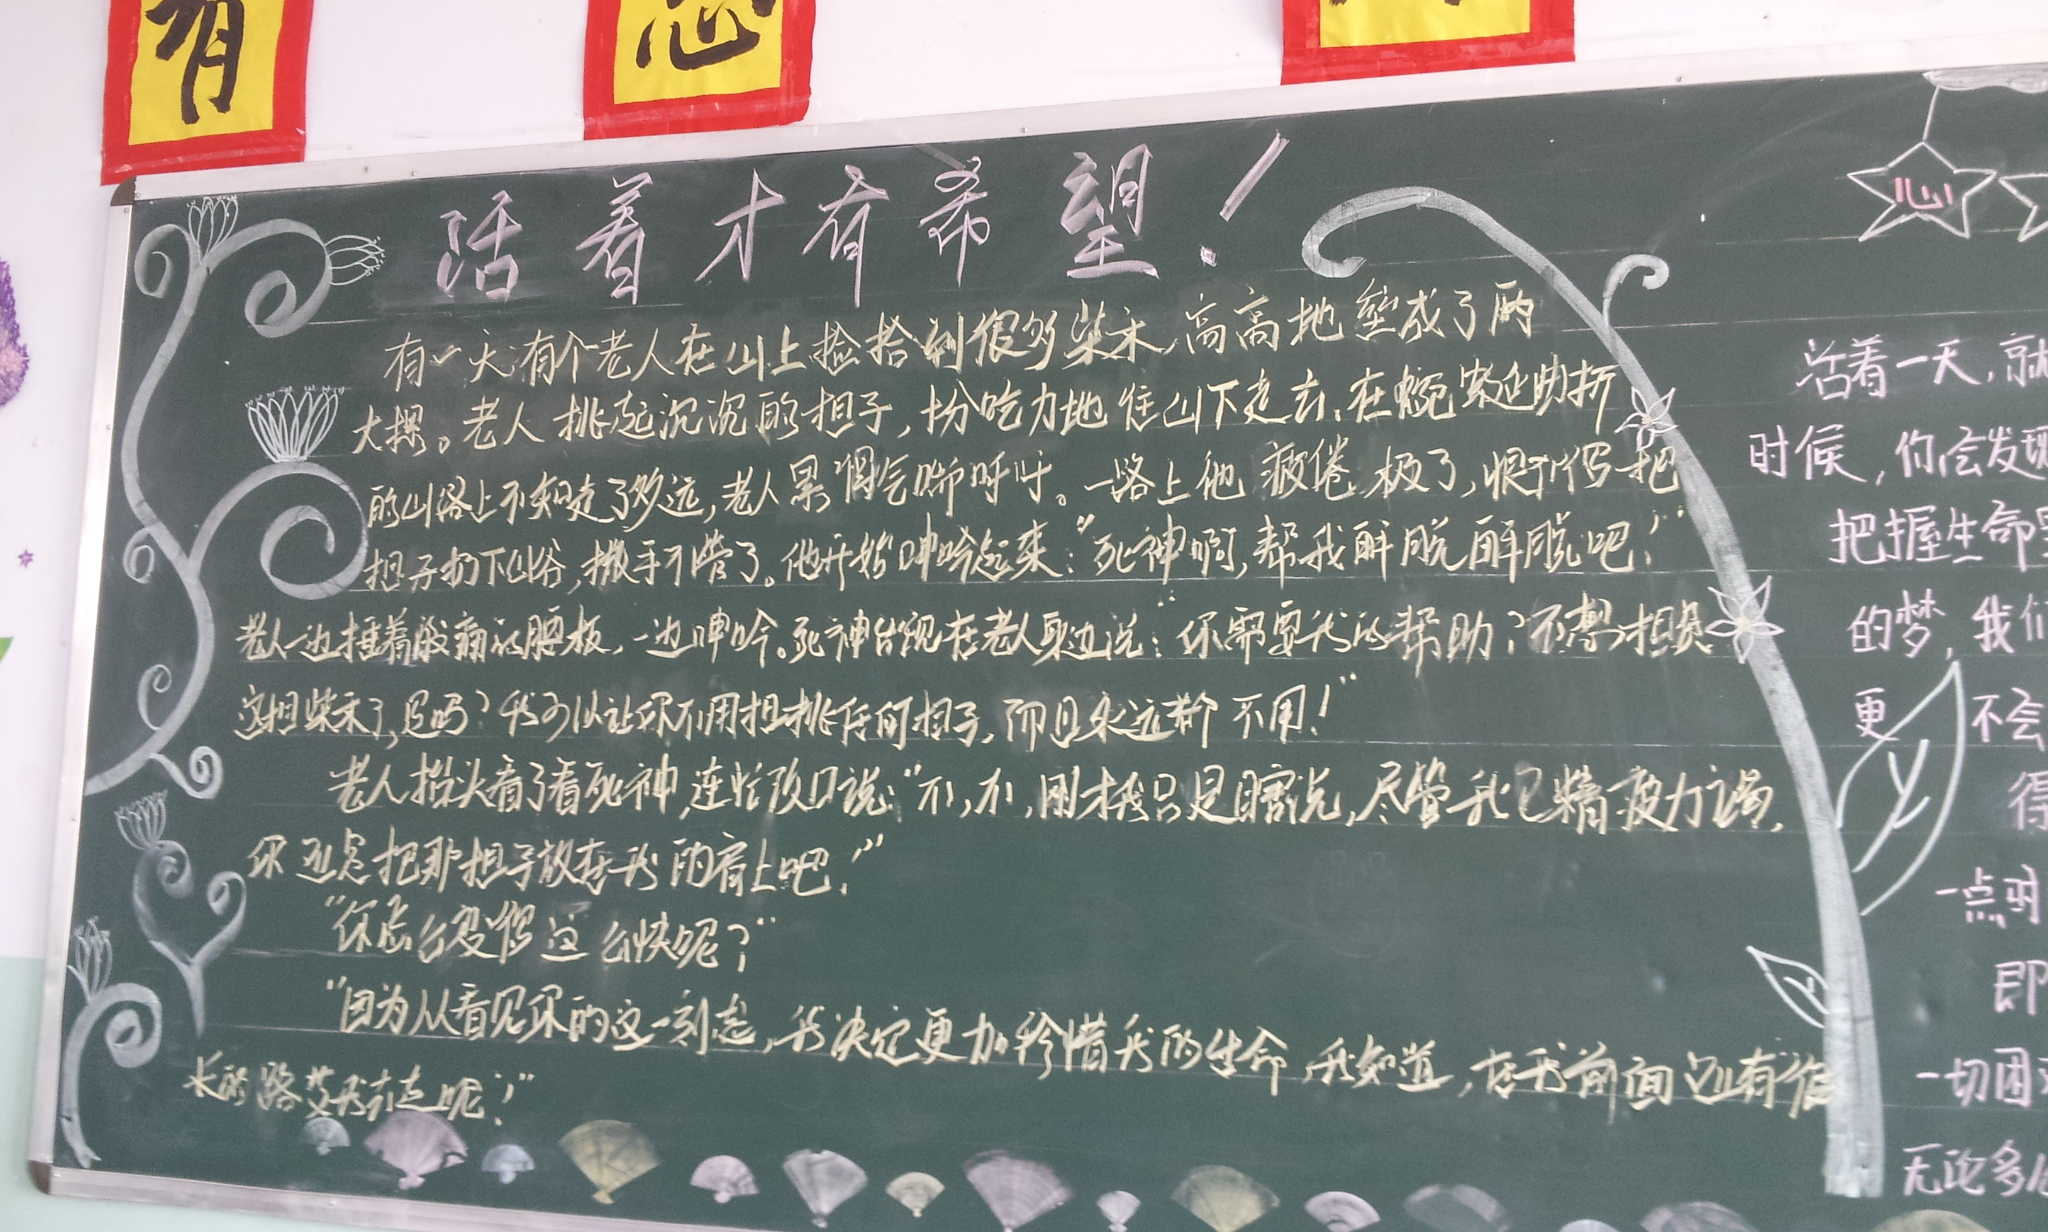 有
活着才有希望!
有一天,有个老人在山上捡拾到很多柴禾,高高地垒成了两
大摞。老人挑起沉沉的担子,十分吃力地往山下走去,在蜿蜒曲折
的山路上不知走了多远,老人累得气喘吁吁。一路上他疲倦极了,恨不得把
担子扔下山谷,撒手不管了。他开始呻吟起来:“死神啊,帮我解脱解脱吧!”
老人一边捶着酸痛的腰板,一边呻吟。死神出现在老人身边说:“你需要我的帮助?不想担负
这担柴禾了,是吗?我可以让你不用担挑任何担子,而且永远都不用!”
老人抬头看了看死神,连忙改口说:“不,不,刚才我只是瞎说,尽管我已精疲力竭,
你还是把那担子放在我的肩上吧!”
“你怎么变得这么快呢?”
“因为从看见你的这一刻起,我决定更加珍惜我的生命,我知道,在我前面还有很
长的路等我去走呢!”
心
活着一天,就
时候,你会发现
把握生命里
的梦,我们
更 不会
得
一点时
即
一切困
无论多么